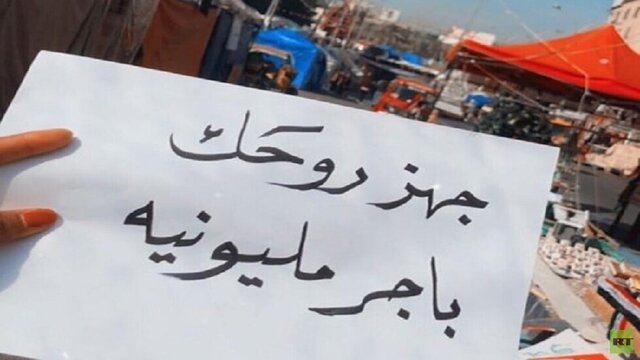 جهز روحَك
باجر مليونيه
RT